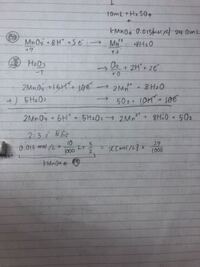 10mL + H2SO4
↓
KMnO4 0.015mol/L 20.0mL
MnO4⁻ + 8H⁺ + 5e⁻ → Mn²⁺ + 4H2O
+7 +2
H2O2 → O2 + 2H⁺ + 2e⁻
-1 ±0
2MnO4⁻ + 16H⁺ + 10e⁻ → 2Mn²⁺ + 8H2O
+) 5H2O2 → 5O2 + 10H⁺ + 10e⁻
2MnO4⁻ + 6H⁺ + 5H2O2 → 2Mn²⁺ + 8H2O + 5O2
0.015 mol/L × /1000 L × 5/2 = x (mol/L) × /1000
KMnO4